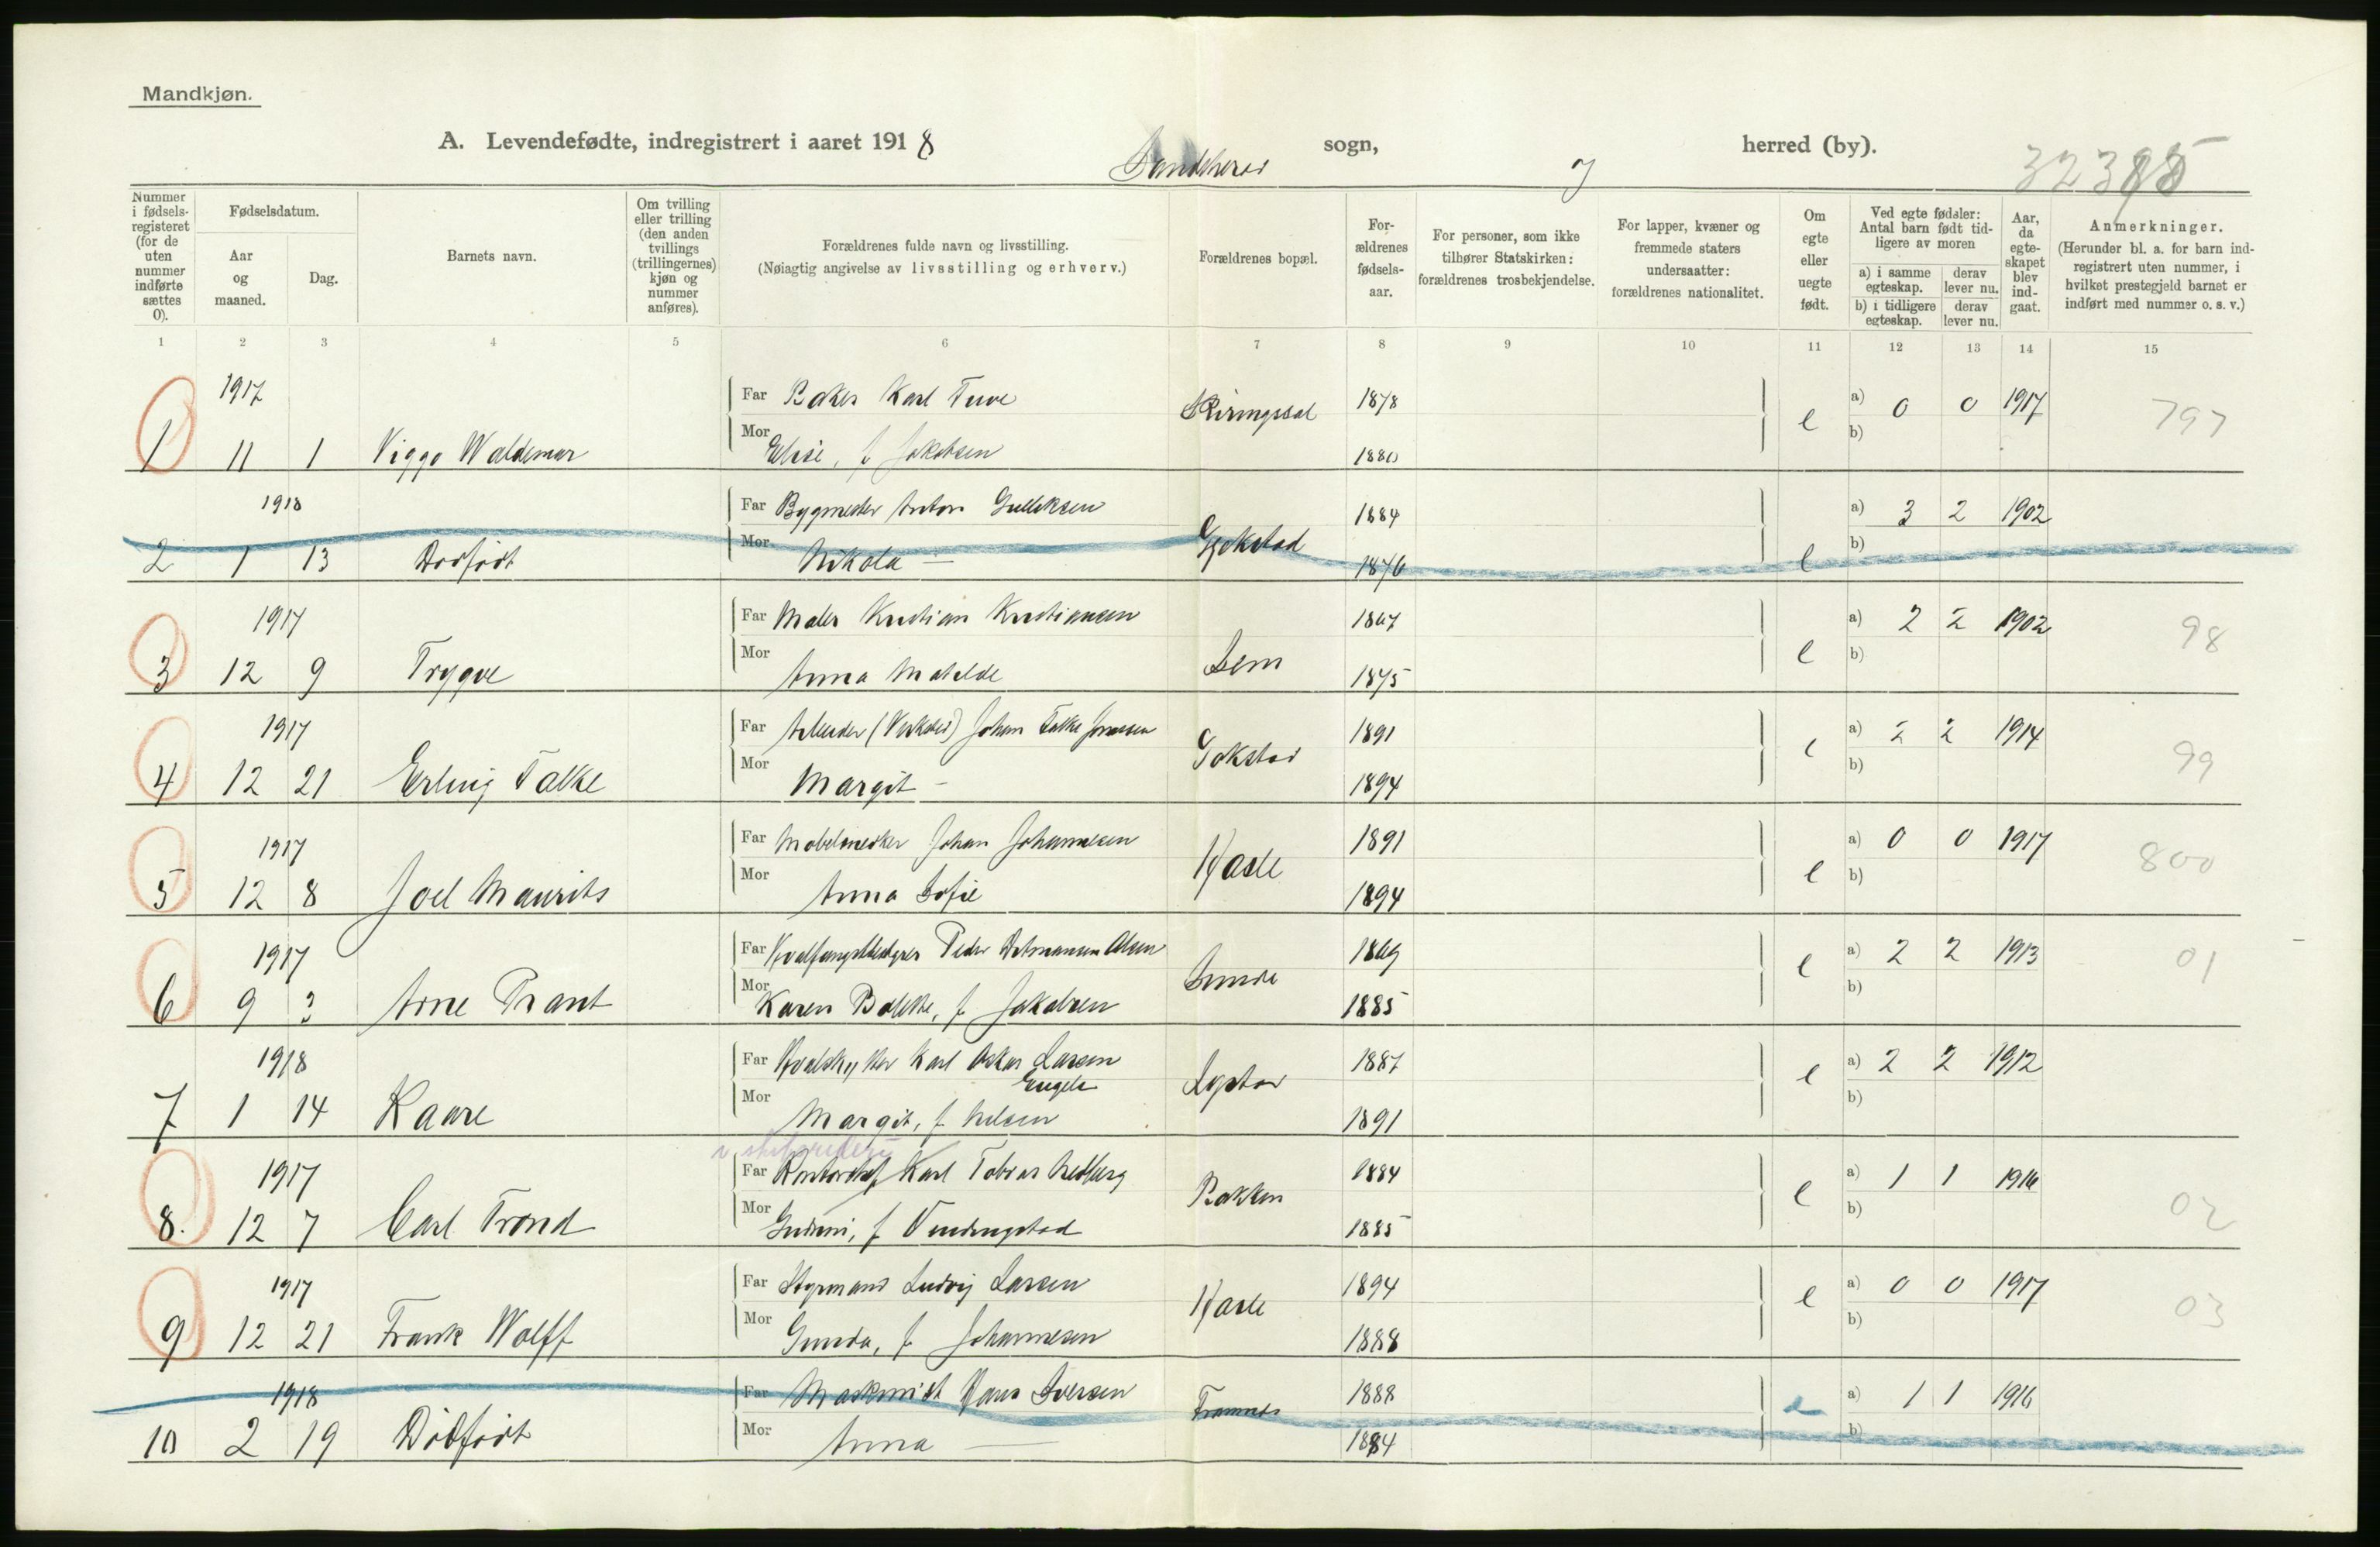 Mandkjøn.
A. Levendefødte, indregistrert i aaret 1918 Sandeherad sogn, herred (by).
Nummer i fødsels-registeret (for de uten nummer indførte sættes 0).
Fødselsdatum.
Aar og maaned.
Dag.
Barnets navn.
Om tvilling eller trilling (den anden tvillings (trillingernes) kjøn og nummer anføres).
Forældrenes fulde navn og livsstilling.
(Nøiagtig angivelse av livsstilling og erhverv.)
Forældrenes bopæl.
For-ældrenes fødsels-aar.
For personer, som ikke tilhører Statskirken: forældrenes trosbekjendelse.
For lapper, kvæner og fremmede staters undersaatter: forældrenes nationalitet.
Om egte eller uegte født.
Ved egte fødsler: Antal barn født tid-ligere av moren
a) i samme egteskap.
derav lever nu.
b) i tidligere egteskap.
derav lever nu.
Aar, da egte-skapet blev ind-gaat.
Anmerkninger.
(Herunder bl. a. for barn ind-registrert uten nummer, i hvilket prestegjeld barnet er indført med nummer o. s. v.)
1 2 3 4 5 6 7 8 9 10 11 12 13 14 15
1917 Far Baker Karl Tuve Skiringssal 1878 e a) 0 0 1917 797
1 11 1 Viggo Waldemar Mor Elise, f. Jakobsen 1880 b)
1918 Far Bygmester Anton Gulliksen Gokstad 1884 e a) 3 2 1902
2 1 13 Dødfødt Mor Nikola — 1876 b)
1917 Far Maler Kristian Kristiansen Lem 1867 e a) 2 2 1902 98
3 12 9 Trygve Mor Anna Matilde 1875 b)
1917 Far Arbeider Johan Falke Gokstad 1891 e a) 2 2 1914 99
4 12 21 Erling Falke Mor Margit — 1894 b)
1917 Far Møbelsnedker Johan Johannesen Hasle 1891 e a) 0 0 1917 800
5 12 8 Joel Maurits Mor Anna Sofie 1894 b)
1917 Far Hvalfangstbestyrer Peder Olsen 1869 e a) 2 2 1913 01
6 9 3 Arne Mor Karen f. Jakobsen 1885 b)
1918 Far Hvalskytter Karl Oskar Larsen 1887 e a) 2 2 1912
7 1 14 Kaare Mor Margit, f. Nilsen 1891 b)
1917 Far Kontorchef Karl Tobias Bakken 1884 e a) 1 1 1916 02
8. 12 7 Carl Trond Mor f. 1885 b)
1917 Far Styrmand Ludvig Larsen Hasle 1894 e a) 0 0 1917 03
9 12 21 Frank Wolff Mor Gunda, f. Johannesen 1888 b)
1918 Far Maskinist Hans Iversen Framnes 1888 e a) 1 1 1916
10 2 19 Dødfødt Mor Anna — 1884 b)